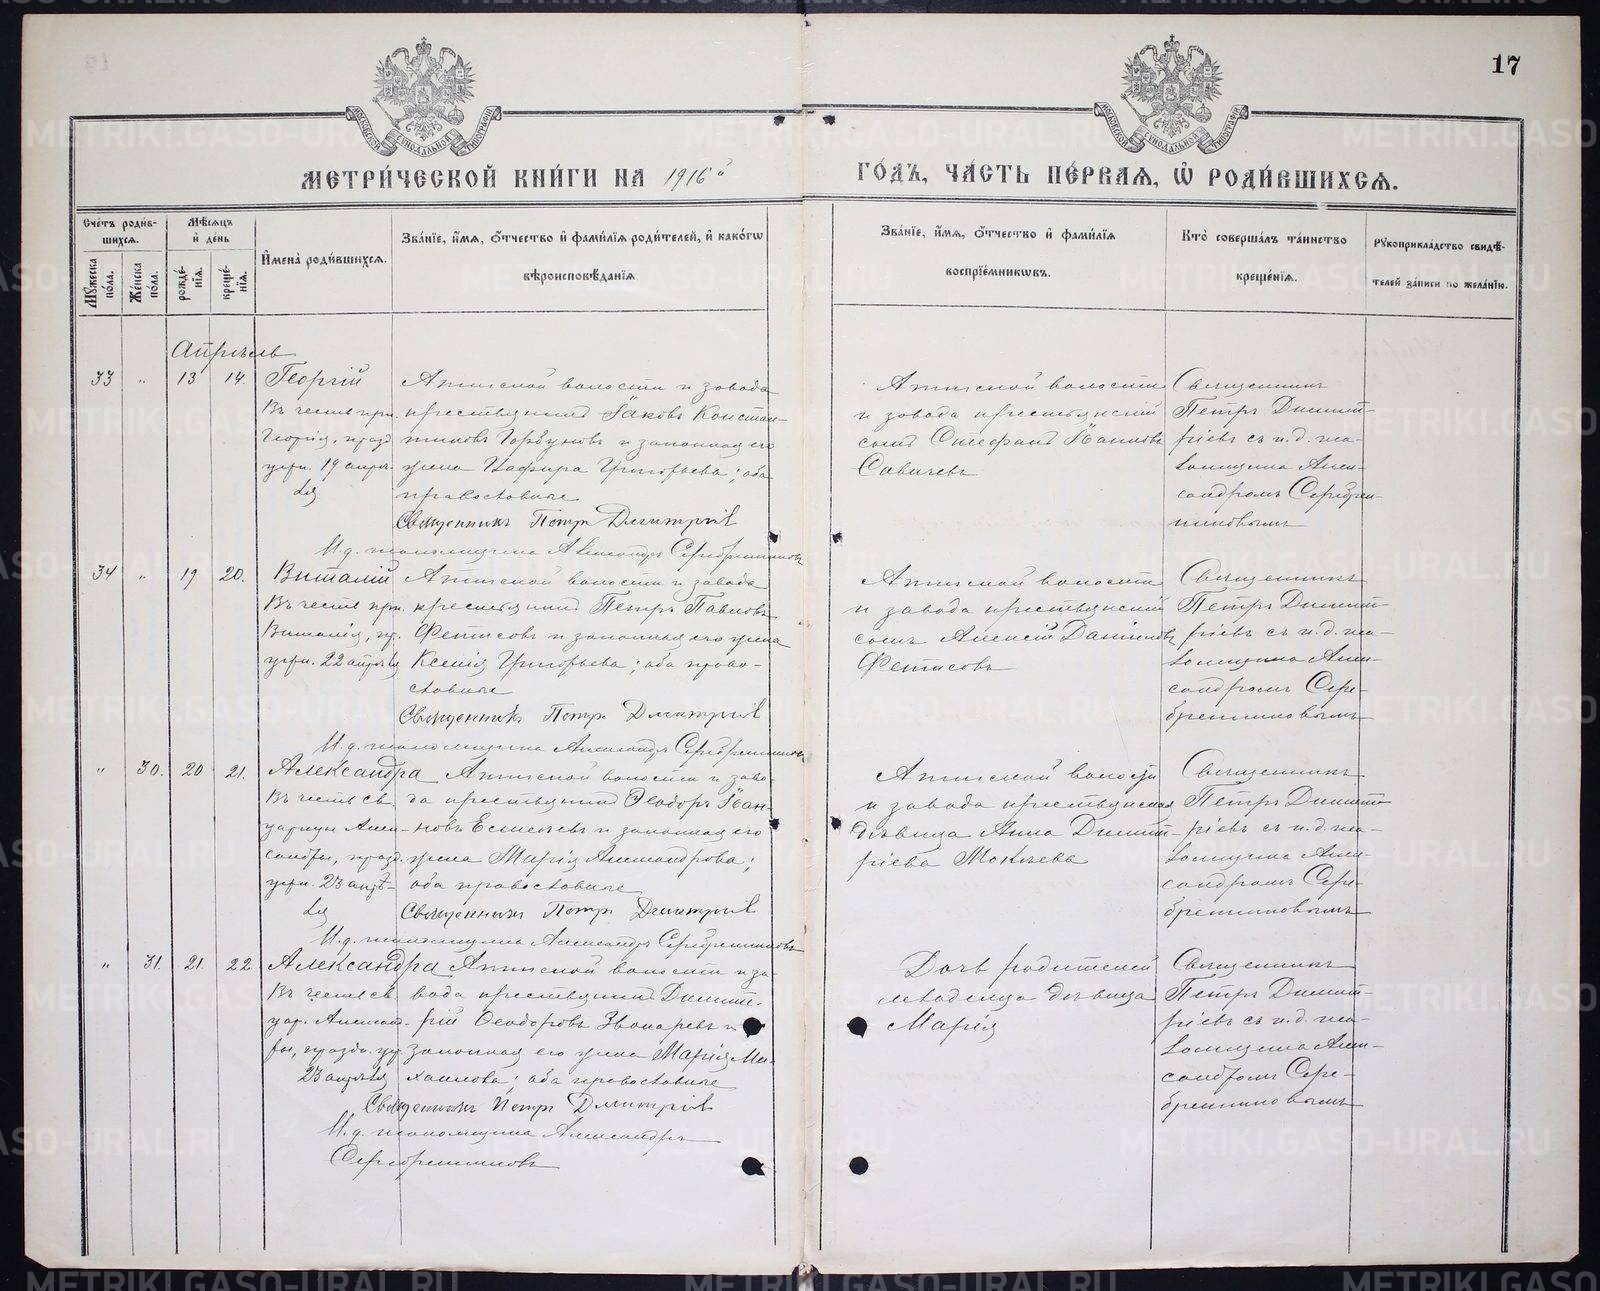 17
МОСКОВСКОЙ СѴНОДАЛЬНОЙ ТИПОГРАФІИ
МОСКОВСКОЙ СѴНОДАЛЬНОЙ ТИПОГРАФІИ
МЕТРИ́ЧЕСКОЙ КНИ́ГИ НА 1916
ГО́ДЪ, ЧА́СТЬ ПЕ́РВАѦ, Ѡ҆ РОДИ́ВШИХСѦ.
Сче́тъ роди́в-
шихсѧ.
Мꙋ́жеска по́ла.
Же́нска по́ла.
Мѣ́сѧцъ и҆ де́нь
рожде́-
нїѧ.
креще́-
нїѧ.
И҆мена̀ роди́вшихсѧ.
Зва́нїе, и҆́мѧ, ѻ҆́тчество и҆ фами́лїѧ роди́телей, и҆ како́гѡ
вѣроисповѣ́данїѧ.
Зва́нїе, и҆́мѧ, ѻ҆́тчество и҆ фами́лїѧ
воспрїе́мникѡвъ.
Кто̀ соверша́лъ та́инство
креще́нїѧ.
Рꙋкоприкла́дство свидѣ́-
телей за́писи по жела́нїю.
Апрѣль
33 " 13 14. Георгій
Въ честь
Георгія, празд
19 апрѣ-
ля
волости и завода
крестьянинъ Іаковъ Констан-
тиновъ Горбуновъ и законная его
жена Григорьева; оба
православные
Священникъ Петръ Димитріев
И.д. псаломщика Александръ Серебренниковъ
волости
и завода крестьянскій
сынъ Стефанъ
Савичевъ
Священникъ
Петръ Димит-
ріевъ съ и.д. пса-
ломщика Алек-
сандромъ Серебрен-
никовымъ
34 " 19 20. Виталій
Въ честь
Виталія, пр.
22 апрѣля
волости и завода
крестьянинъ Петръ Павловъ
Фетисовъ и законная его жена
Ксенія Григорьева; оба право-
славные
Священникъ Петръ Димитріев
И.д. псаломщика Александръ Серебренниковъ
волости
и завода крестьянскій
сынъ Алексій Даніиловъ
Фетисовъ
Священникъ
Петръ Димит-
ріевъ съ и.д. пса-
ломщика Алек-
сандромъ Сере-
бренниковымъ
" 30. 20 21. Александра
Въ честь св.
царицы Алек-
сандры, празд.
23 апрѣ-
ля
волости и заво-
да крестьянинъ Ѳеодоръ Іоан-
новъ и законная его
жена Марія Александрова;
оба православные
Священникъ Петръ Димитріев
И.д. псаломщика Александръ Серебренниковъ
волости
и завода крестьянская
дѣвица Анна Димит-
ріева
Священникъ
Петръ Димит-
ріевъ съ и.д. пса-
ломщика Алек-
сандромъ Сере-
бренниковымъ
" 31. 21. 22 Александра
Въ честь св.
цар. Александ-
ры, праздн.
23 апрѣля
волости и за-
вода крестьянинъ Димит-
рій Ѳеодоровъ Звонаревъ и
законная его жена Марія Ми-
хаилова; оба православные
Священникъ Петръ Димитріев
И.д. псаломщика Александръ
Серебренниковъ
Дочь родителей
младенца дѣвица
Марія
Священникъ
Петръ Димит-
ріевъ съ и.д. пса-
ломщика Алек-
сандромъ Сере-
бренниковымъ
METRIKI.GASO-URAL.RU